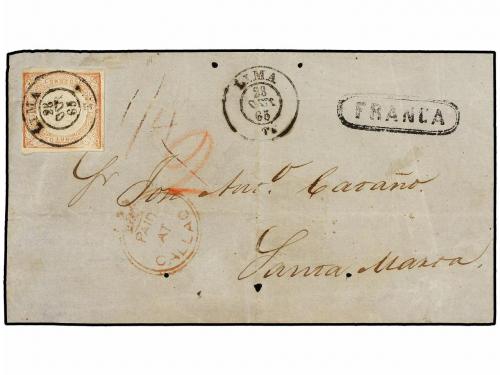 LIMA
28
65
LIMA
28
65
FRANCA
1/4
2
Sr Don Anto. Cataño
PAID
AT
CALLAO
Santa Marta.